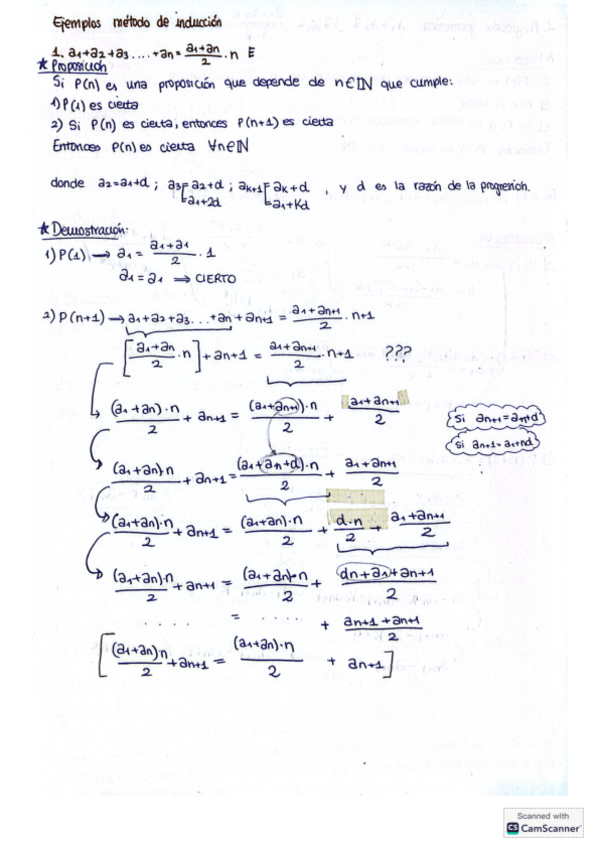 Ejemplos método de inducción
1. a1+a2+a3....+an= a1+an/2 · n E
★ Proposición
Si P(n) es una proposición que depende de n∈ℕ que cumple:
1) P(1) es cierta
2) Si P(n) es cierta, entonces P(n+1) es cierta
Entonces P(n) es cierta ∀n∈ℕ
donde a2=a1+d ; a3[a2+d ; ak+1[ak+d , y d es la razón de la progresión.
a1+2d a1+Kd
★ Demostración:
1) P(1) → a1 = a1+a1/2 · 1
a1 = a1 → CIERTO
2) P(n+1) → a1+a2+a3...+an+an+1 = a1+an+1/2 · n+1
[a1+an/2 · n] + an+1 = a1+an+1/2 · n+1 ???
(a1+an)·n/2 + an+1 = (a1+an+1)·n/2 + a1+an+1/2
Si an+1=an+d
Si an+1=a1+nd
(a1+an)·n/2 + an+1 = (a1+an+d)·n/2 + a1+an+1/2
(a1+an)·n/2 + an+1 = (a1+an)·n/2 + d·n/2 + a1+an+1/2
(a1+an)·n/2 + an+1 = (a1+an)·n/2 + dn+a1+an+1/2
. . . . . . = . . . . . + an+1+an+1/2
[(a1+an)n/2 + an+1 = (a1+an)·n/2 + an+1]
Scanned with
CS CamScanner